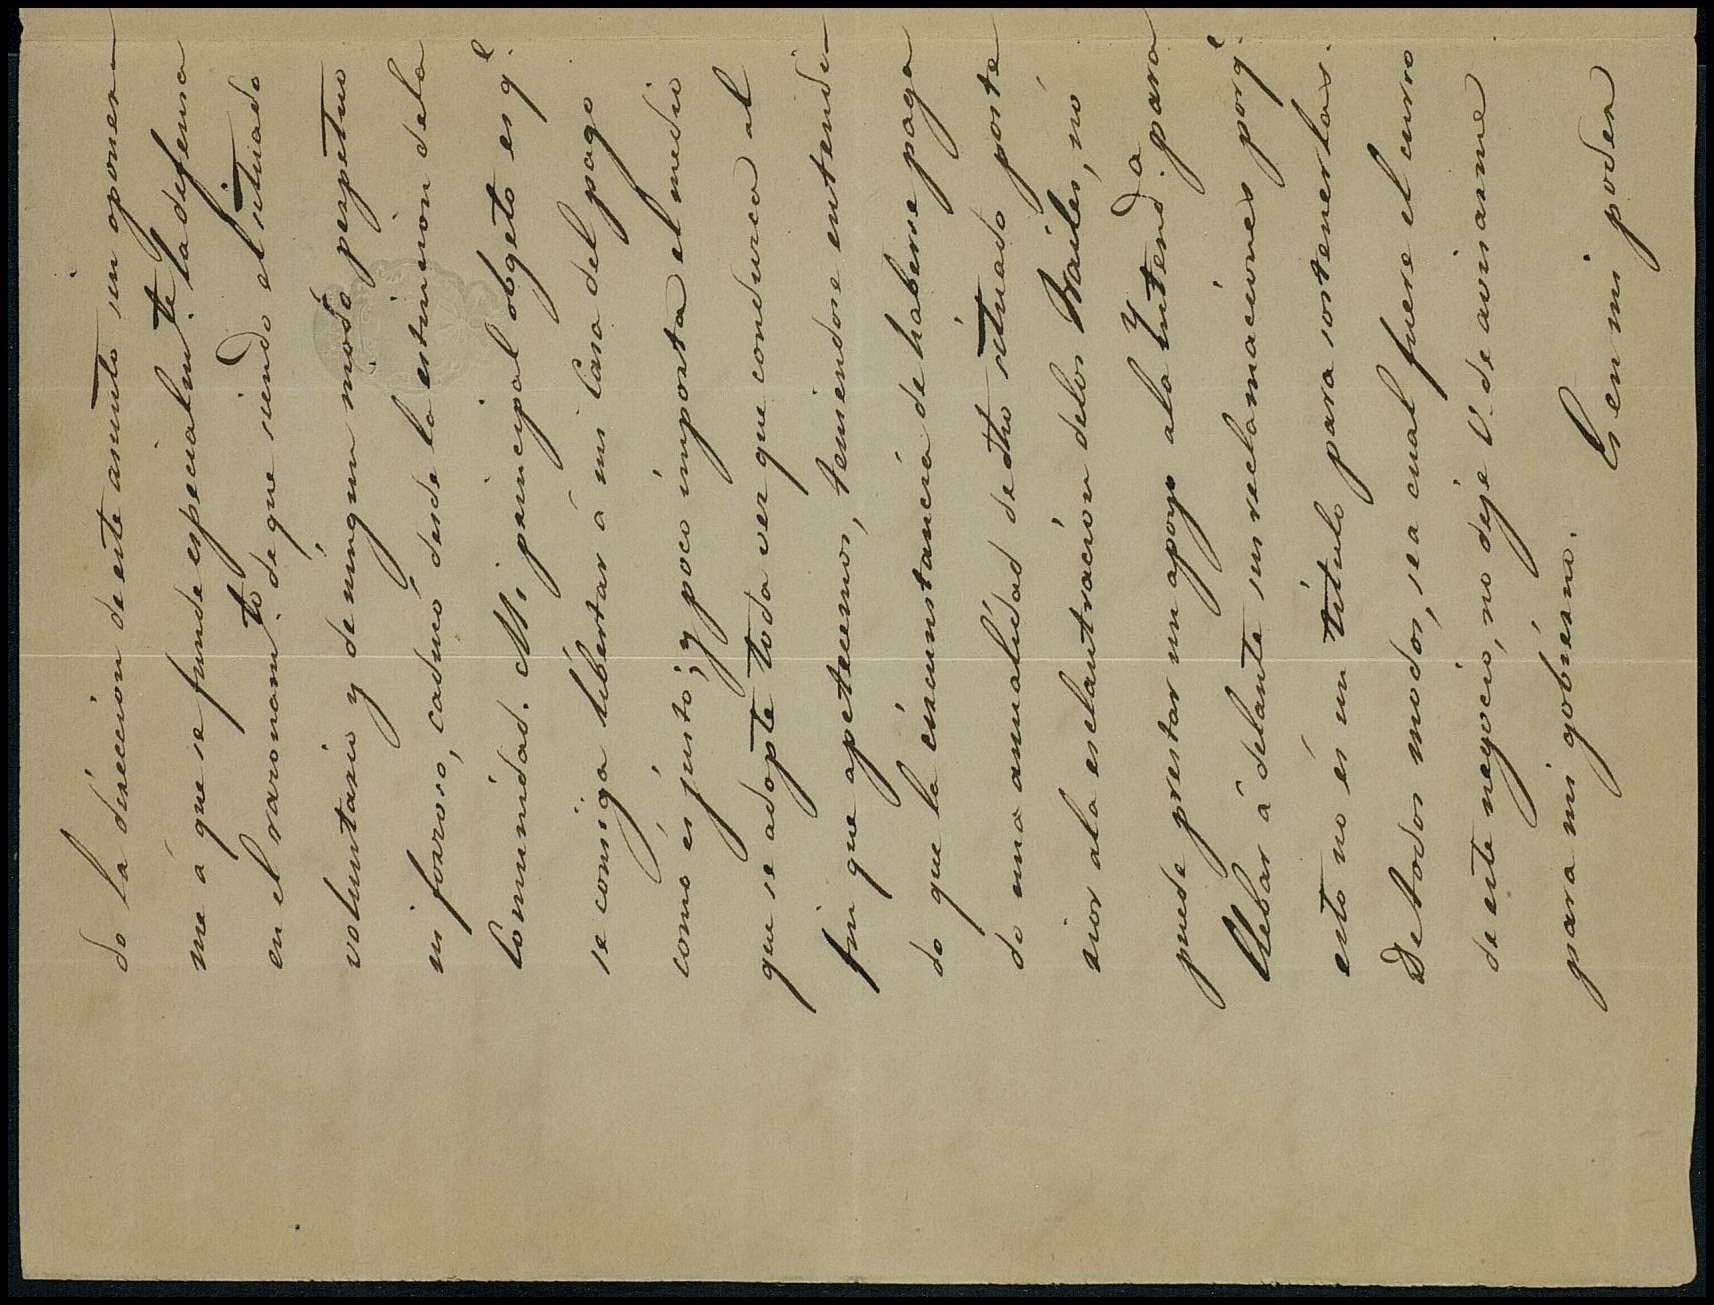 do la dirección de este asunto sin oponer
me á que se funde especialm.te la defensa
en el razonam.to de que siendo el situado
voluntario y de ningun modo perpetuo
ni forzoso, caducó desde la estincion dela
Comunidad. Mi principal obgeto es q.e
se consiga libertar á mi Casa del pago
como és justo; y poco importa el medio
que se adopte toda vez que conduzca al
fin que apetecemos, teniendose entendi
do que la circunstancia de haberse paga
do una anualidad de dho situado poste
rior ala esclaustracion delos Frailes, no
puede prestar un apoyo ala Yntend.a para
llebar á delante sus reclamaciones porq.e
esto no és un titulo para sostenerlas.
De todos modos, sea cual fuere el curso
de este negocio, no deje V. de avisarme
para mi gobierno.
Es en mi poder